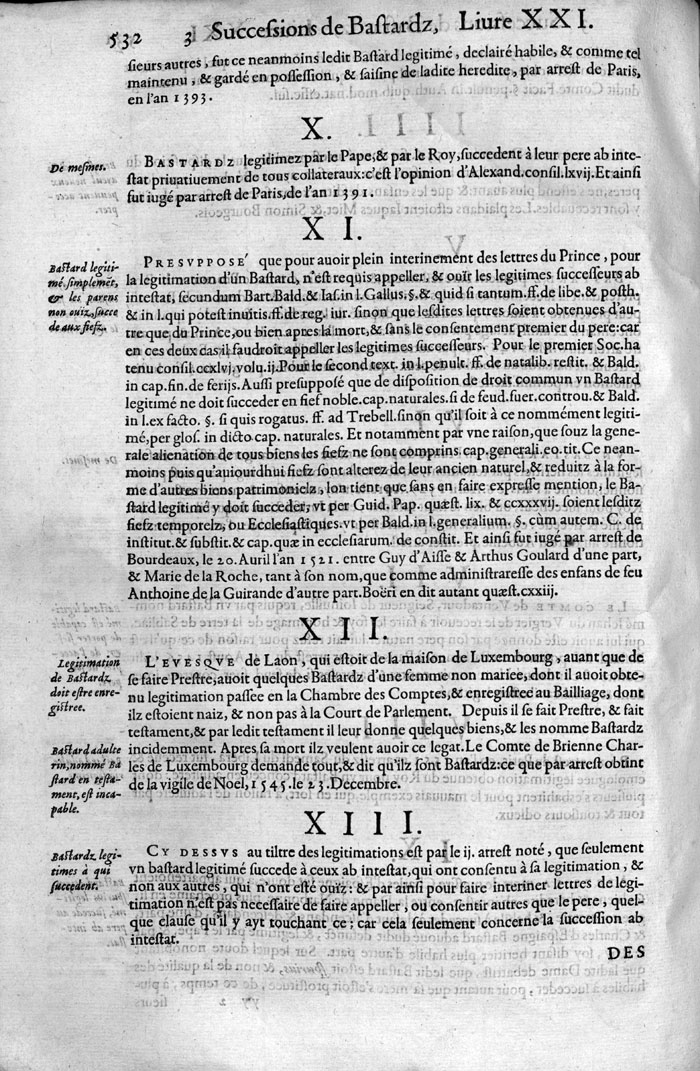 532 3 Successions de Bastardz, Liure XXI.
sieurs autres, fut ce neanmoins ledit Bastard legitimé, declairé habile, & comme tel
maintenu, & gardé en possession, & saisine de ladite heredite, par arrest de Paris,
en l'an 1393.
X.
De mesmes.
BASTARDZ legitimez par le Pape, & par le Roy, succedent à leur pere ab inte-
stat priuatiuement de tous collateraux: c'est l'opinion d'Alexand. consil. lxvij. Et ainsi
fut iugé par arrest de Paris, de l'an 1391.
XI.
Bastard legiti-
mé simplemēt,
& les parens
non ouiz, succe
de aux fiefz.
PRESVPPOSE' que pour auoir plein interinement des lettres du Prince, pour
la legitimation d'un Bastard, n'est requis appeller, & ouïr les legitimes successeurs ab
intestat, secundum Bart. Bald. & Ias. in l. Gallus. §. & quid si tantum. ff. de libe. & posth.
& in l. qui potest inuitis. ff. de reg. iur. sinon que lesdites lettres soient obtenues d'au-
tre que du Prince, ou bien apres la mort, & sans le consentement premier du pere: car
en ces deux cas il faudroit appeller les legitimes successeurs. Pour le premier Soc. ha
tenu consil. ccxlvj. volu. ij. Pour le second text. in l. penult. ff. de natalib. restit. & Bald.
in cap. fin. de ferijs. Aussi presupposé que de disposition de droit commun vn Bastard
legitimé ne doit succeder en fief noble. cap. naturales. si de feud. fuer. controu. & Bald.
in l. ex facto. §. si quis rogatus. ff. ad Trebell. sinon qu'il soit à ce nommément legiti-
mé, per glos. in dicto cap. naturales. Et notamment par vne raison, que souz la gene-
rale alienation de tous biens les fiefz ne sont comprins cap. generali. eo. tit. Ce nean-
moins puis qu'auiourdhui fiefz sont alterez de leur ancien naturel, & reduitz à la for-
me d'autres biens patrimonielz, lon tient que sans en faire expresse mention, le Ba-
stard legitimé y doit succeder, vt per Guid. Pap. quæst. lix. & ccxxxvij. soient lesditz
fiefz temporelz, ou Ecclesiastiques. vt per Bald. in l. generalium. §. cùm autem. C. de
institut. & substit. & cap. quæ in ecclesiarum. de constit. Et ainsi fut iugé par arrest de
Bourdeaux, le 20. Auril l'an 1521. entre Guy d'Aisse & Arthus Goulard d'une part,
& Marie de la Roche, tant à son nom, que comme administraresse des enfans de feu
Anthoine de la Guirande d'autre part. Boëri en dit autant quæst. cxxiij.
XII.
Legitimation
de Bastardz
doit estre enre-
gistree.
Bastard adulte
rin, nommé Ba
stard en testa-
ment, est inca-
pable.
L'EVESQVE de Laon, qui estoit de la maison de Luxembourg, auant que de
se faire Prestre, auoit quelques Bastardz d'une femme non mariee, dont il auoit obte-
nu legitimation passee en la Chambre des Comptes, & enregistree au Bailliage, dont
ilz estoient naiz, & non pas à la Court de Parlement. Depuis il se fait Prestre, & fait
testament, & par ledit testament il leur donne quelques biens, & les nomme Bastardz
incidemment. Apres sa mort ilz veulent auoir ce legat. Le Comte de Brienne Char-
les de Luxembourg demande tout, & dit qu'ilz sont Bastardz: ce que par arrest obtint
de la vigile de Noel, 1545. le 23. Decembre.
XIII.
Bastardz legi-
times à qui
succedent.
CY DESSVS au tiltre des legitimations est par le ij. arrest noté, que seulement
vn bastard legitimé succede à ceux ab intestat, qui ont consentu à sa legitimation, &
non aux autres, qui n'ont esté ouiz: & par ainsi pour faire interiner lettres de legi-
timation n'est pas necessaire de faire appeller, ou consentir autres que le pere, quel-
que clause qu'il y ayt touchant ce; car cela seulement concerne la succession ab
intestat.
DES